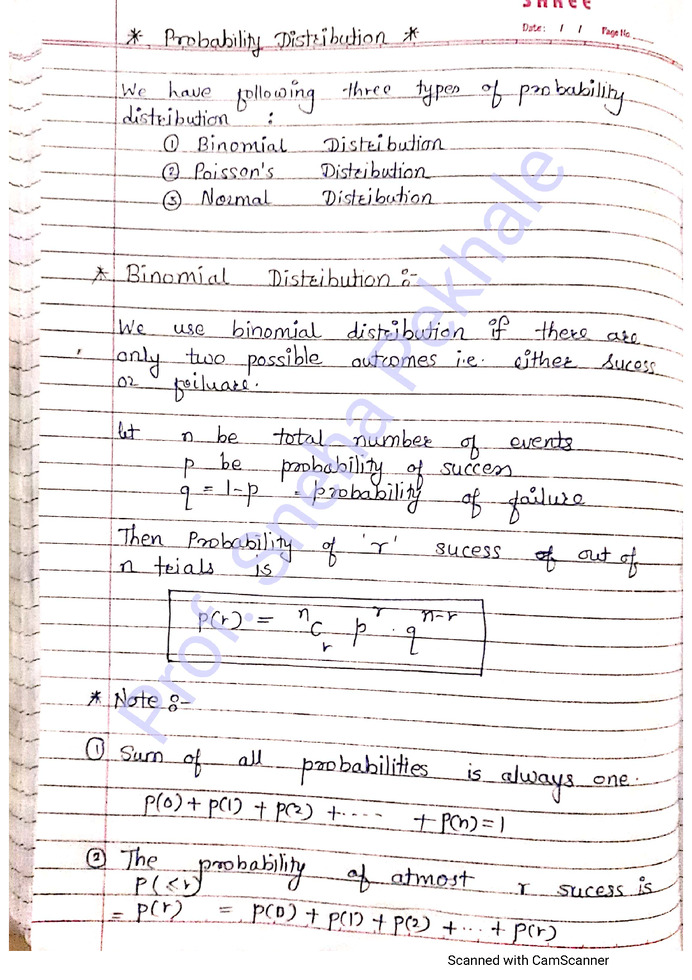 SHREE
Date: / / Page No.
* Probability Distribution *
We have following three types of probability
distribution :
① Binomial Distribution
② Poisson's Distribution
③ Normal Distribution
* Binomial Distribution :-
We use binomial distribution if there are
only two possible outcomes i.e. either sucess
or failuare.
let n be total number of events
p be probability of success
q = 1-p = probability of failure
Then Probability of 'r' sucess of out of
n trials is
p(r) = ⁿCᵣ pʳ · qⁿ⁻ʳ
* Note :-
① Sum of all probabilities is always one.
p(0) + p(1) + p(2) + ..... + p(n) = 1
② The probability of atmost r sucess is
p(≤r)
= p(r) = p(0) + p(1) + p(2) + ... + p(r)
Prof. Sneha Pekhale
Scanned with CamScanner